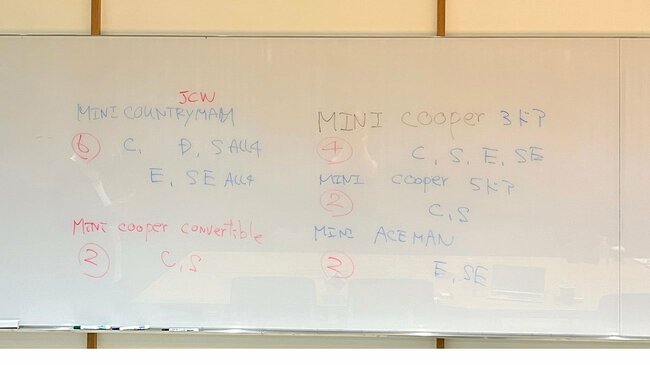 JCW
MINI COUNTRYMAN
⑥ C, D, S ALL4
E, SE ALL4
MINI cooper convertible
② C, S
MINI cooper 3ドア
④ C, S, E, SE
MINI cooper 5ドア
② C, S
MINI ACEMAN
② E, SE